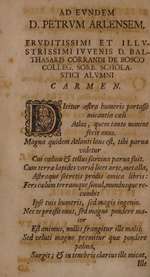 AD EVNDEM
D. PETRVM ARLENSEM,
ERVDITISSIMI ET ILLV-
STRISSIMI IVVENIS D. BAL-
THASARIS CORRANDI DE BOSCO
COLLEG. SORB. SCHOLA-
STICI ALVMNI
CARMEN.
Dicitur astra humeris portasse
micantia cœli
Atlas, quem tanto nomine
ferit onus.
Magna quidem Atlanti laus est, tibi parua
videtur
Cui cœlum & tellus sarcina parua fuit.
Cum terra lapides varios licet aere, metallis,
Astraque secretis prodis amica libris:
Fers cœlum terramque simul, numbosque re-
cumbit
Ipse tuis humeris, sed magis ingenio.
Nec te pressit onus, sed magno pondere ma-
ior
Est animus, nulli frangitur ille malis.
Sed veluti magno premitur quæ pondere
palma,
Surgit; & in excelsis clarius ille micat,
Ille